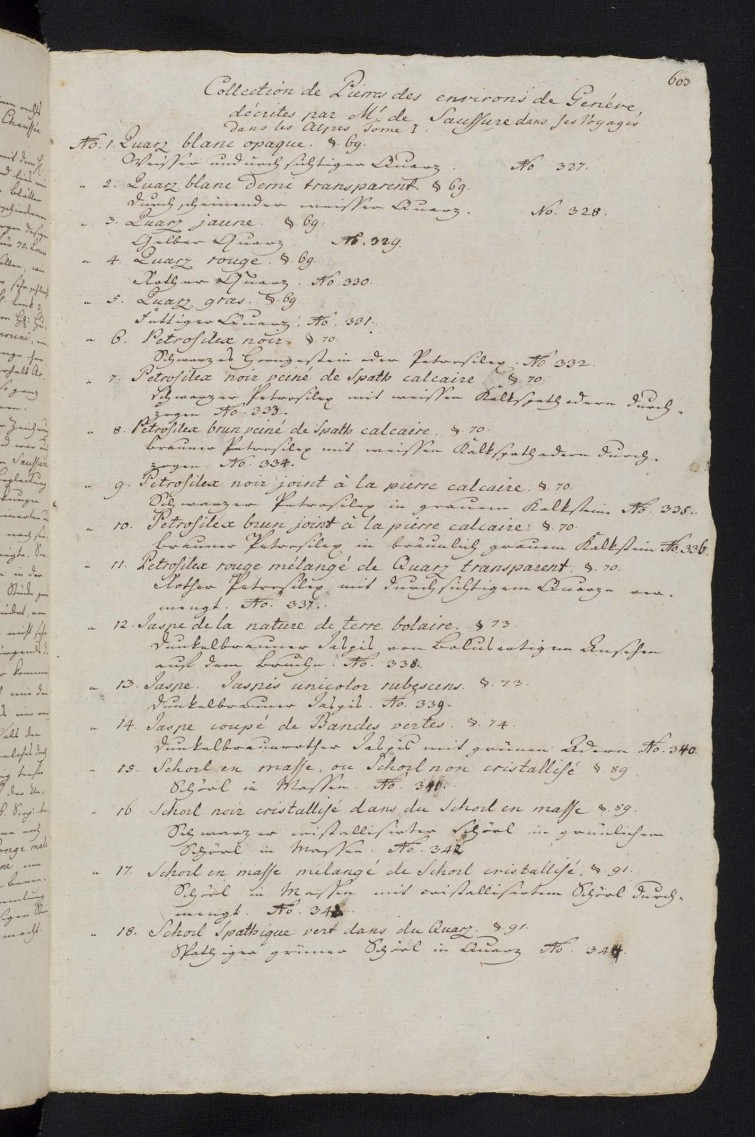 603
Collection de Pierres des environs de Genéve
décrites par Mr. de Saussure dans ses Voyages
dans les Alpes Tome I.
No. 1. Quarz blanc opaque. §. 69.
Weisser undurchsichtiger Quarz. No. 327.
" 2. Quarz blanc demi transparent §. 69.
Durchscheinender weisser Quarz. No. 328.
" 3. Quarz jaune. §. 69.
Gelber Quarz. No. 329.
" 4. Quarz rouge. §. 69.
Rother Quarz. No. 330.
" 5. Quarz gras. §. 69
Fettiger Quarz. No. 331.
" 6. Petrosilex noir. §. 70.
Schwarzes Hornstein oder Petrosilex. No. 332.
" 7. Petrosilex noir veiné de Spath calcaire §. 70.
Schwarzer Petrosilex mit weissen Kalkspathadern durch-
zogen No. 333.
" 8. Petrosilex brun veiné de Spath calcaire. §. 70.
Brauner Petrosilex mit weissen Kalkspathadern durch-
zogen. No. 334.
" 9. Petrosilex noir joint à la pierre calcaire. §. 70.
Schwarzer Petrosilex in grauem Kalkstein No. 335.
" 10. Petrosilex brun joint à la pierre calcaire. §. 70.
Brauner Petrosilex in bräunlich grauem Kalkstein No. 336.
" 11. Petrosilex rouge mélangé de Quarz transparent. §. 70.
Rother Petrosilex mit durchsichtigem Quarze ver-
mengt. No. 337.
" 12. Jaspe de la nature de terre bolaire. §. 73.
Dunkelbrauner Jaspis von Bolusartigem Ansehen
auf dem Bruche. No. 338.
" 13. Jaspe. Jaspis unicolor rubescens. §. 73.
Dunkelbrauner Jaspis. No. 339.
" 14. Jaspe coupé de Bandes vertes. §. 74.
Dunkelbraunrother Jaspis mit grünen Adern No. 340.
" 15. Schorl en masse, ou Schorl non cristallisé §. 89.
Schörl in Massen. No. 341.
" 16. Schorl noir cristallisé dans du Schorl en masse §. 89.
Schwarzer cristallisirter Schörl in grünlichem
Schörl in Massen. No. 342
" 17. Schorl en masse mélangé de Schorl cristallisé. §. 91.
Schörl in Massen mit cristallisirtem Schörl durch-
mengt. No. 343.
" 18. Schorl Spathique vert dans du Quarz. §. 91.
Spathiger grüner Schörl in Quarz No. 344.